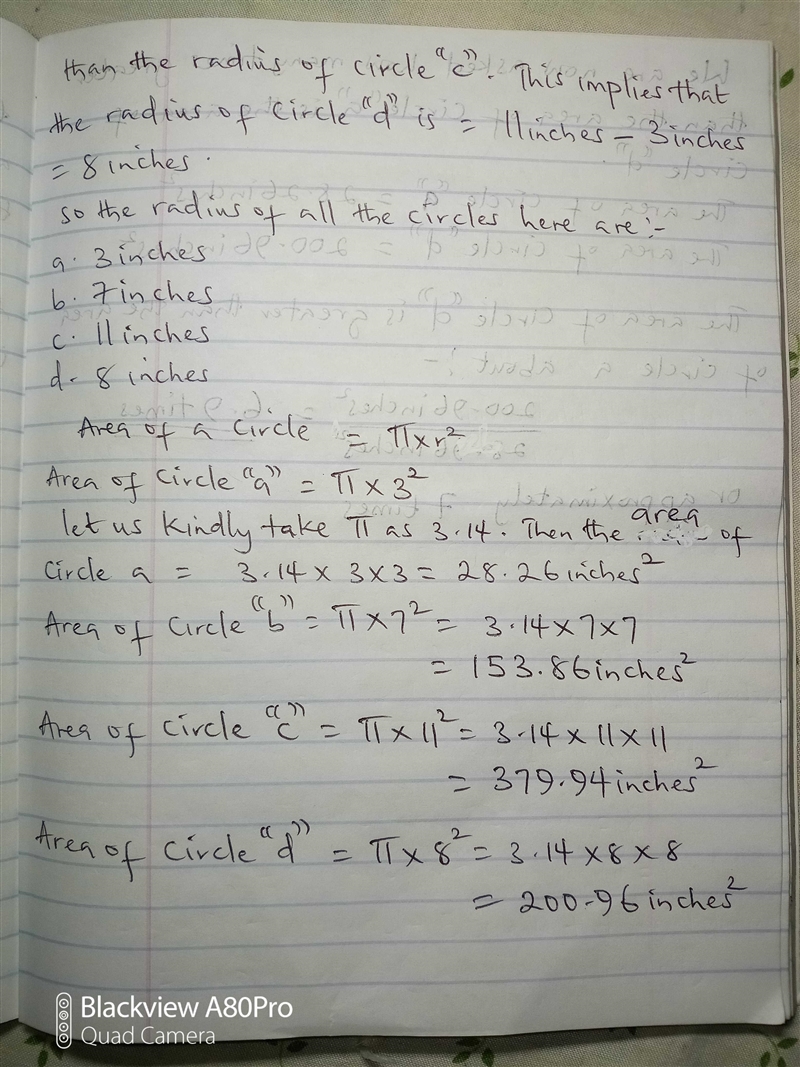 than the radius of circle "c". This implies that
the radius of circle "d" is = 11inches - 3inches
= 8inches.
so the radius of all the circles here are:-
a. 3inches
b. 7inches
c. 11inches
d. 8inches
Area of a circle = π×r²
Area of circle "a" = π × 3²
let us kindly take π as 3.14. Then the area of
circle a = 3.14 × 3×3 = 28.26inches²
Area of circle "b" = π×7² = 3.14×7×7
= 153.86inches²
Area of circle "c" = π×11² = 3.14×11×11
= 379.94inches²
Area of circle "d" = π×8² = 3.14×8×8
= 200.96inches²
Blackview A80Pro
Quad Camera